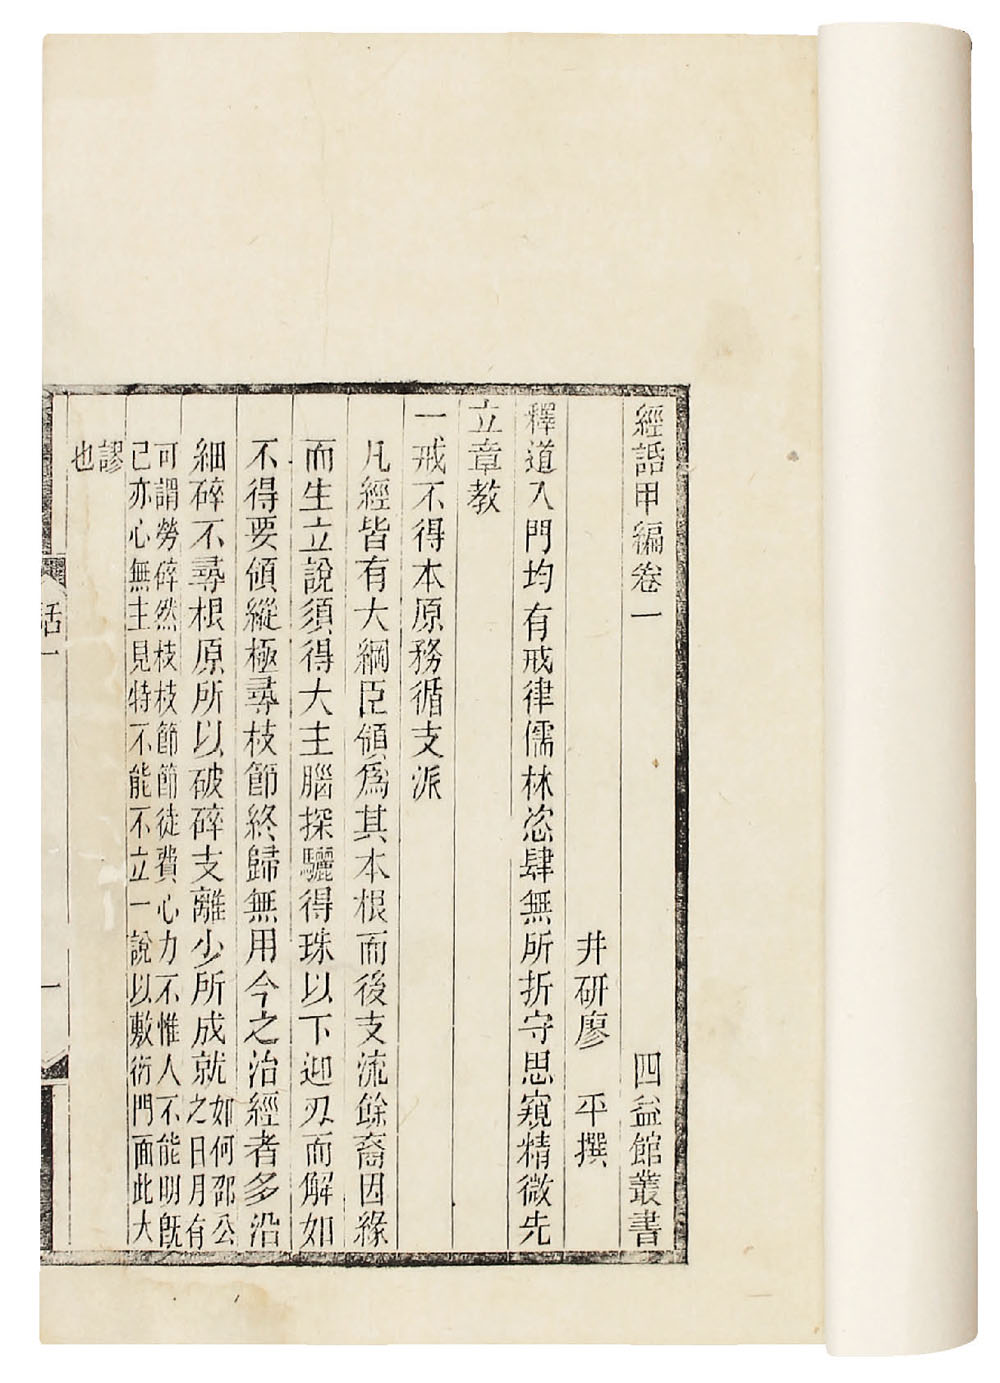 經話甲編卷一
四益館叢書
井研廖　平撰
釋道入門均有戒律儒林恣肆無所折守思窺精微先
立章教
一戒不得本原務循支派
凡經皆有大綱臣領爲其本根而後支流餘裔因緣
而生立說須得大主腦探驪得珠以下迎刃而解如
不得要領縱極尋枝節終歸無用今之治經者多沿
細碎不尋根原所以破碎支離少所成就
如何邵公
之日月有
可謂勞碎然枝枝節節徒費心力不惟人不能明旣
己亦心無主見特不能不立一說以敷衍門面此大
謬
也
話一
一